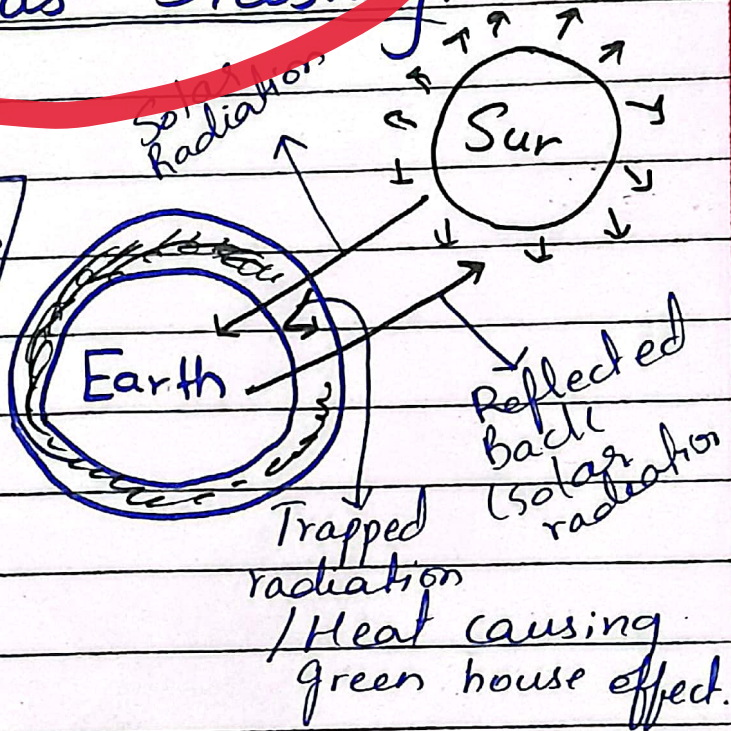 Solar
Radiation
Sun
Earth
Reflected
Back
(Solar
radiation
Trapped
radiation
/Heat causing
green house effect.